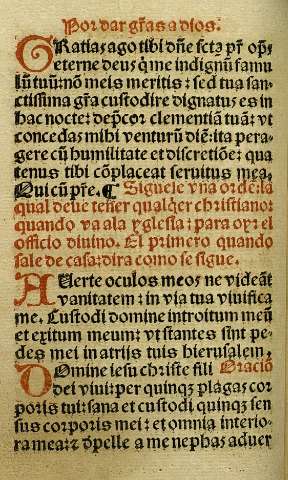 Por dar gr̃as a dios.
GRatias ago tibi dñe sctã pr̃ op̃s
eterne deus q̇ me indignũ famu
lũ tuũ: nõ meis meritis: sed tua san-
ctissima gr̃a custodire dignatus es in
hac nocte: dep̃cor clementiã tuã: vt
concedas mihi venturũ diẽ: ita pera-
gere cũ humilitate et discretiõe: qua
tenus tibi cõplaceat seruitus mea.
Qui cũ pr̃e. ¶ Siguese vna ordẽ: la
qual deue tener qualquier christiano:
quando va ala yglesia: para oyr el
officio diuino. El primero quando
sale de casa: dira como se sigue.
AUerte oculos meos ne videãt
vanitatem: in via tua viuifica
me. Custodi domine introitum meũ
et exitum meum: vt stantes sint pe-
des mei in atrijs tuis hierusalem.
DOmine iesu christe fili Oracion
dei viui: per quinq; plagas cor
poris tui: sana et custodi quinq; sen
sus corporis mei: et omnia interio-
ra mea: z d̃pelle a me nephas aduer